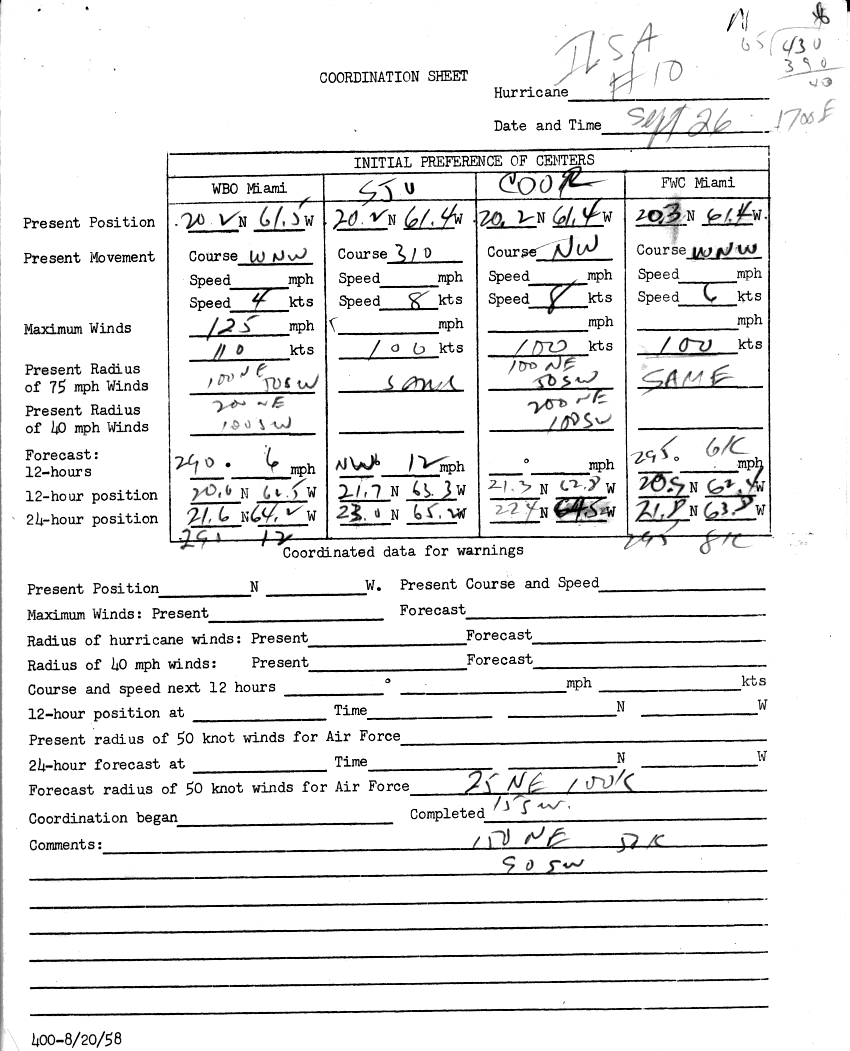 N
65 430
390
40
ILSA
COORDINATION SHEET
#10
Hurricane
Date and Time Sept 26 1700E
INITIAL PREFERENCE OF CENTERS
WBO Miami SJU COOR FWC Miami
Present Position 20.2 N 61.5 W 20.2 N 61.4 W 20.2 N 61.4 W 203 N 61.4 W.
Present Movement Course WNW Course 310 Course NW Course WNW
Speed mph Speed mph Speed mph Speed mph
Speed 4 kts Speed 8 kts Speed 8 kts Speed 6 kts
Maximum Winds 125 mph mph mph mph
110 kts 100 kts 100 kts 100 kts
Present Radius of 75 mph Winds 100 NE 50 SW SAME 100 NE 50 SW SAME
Present Radius of 40 mph Winds 200 NE 100 SW 200 NE 100 SW
Forecast:
12-hours 290° 6 mph NW 12 mph ° mph 295° 6/K mph
12-hour position 20.6 N 62.5 W 21.7 N 63.3 W 21.3 N 62.8 W 20.9 N 62.4 W
24-hour position 21.6 N 64.2 W 23.0 N 65.2 W 224 N 64.5 W 21.8 N 63.8 W
295 12 295 8/K
Coordinated data for warnings
Present Position N W. Present Course and Speed
Maximum Winds: Present Forecast
Radius of hurricane winds: Present Forecast
Radius of 40 mph winds: Present Forecast
Course and speed next 12 hours ° mph kts
12-hour position at Time N W
Present radius of 50 knot winds for Air Force
24-hour forecast at Time N W
Forecast radius of 50 knot winds for Air Force 25 NE 100K
Coordination began Completed 15 SW.
Comments: 150 NE 50 K
90 SW
400-8/20/58